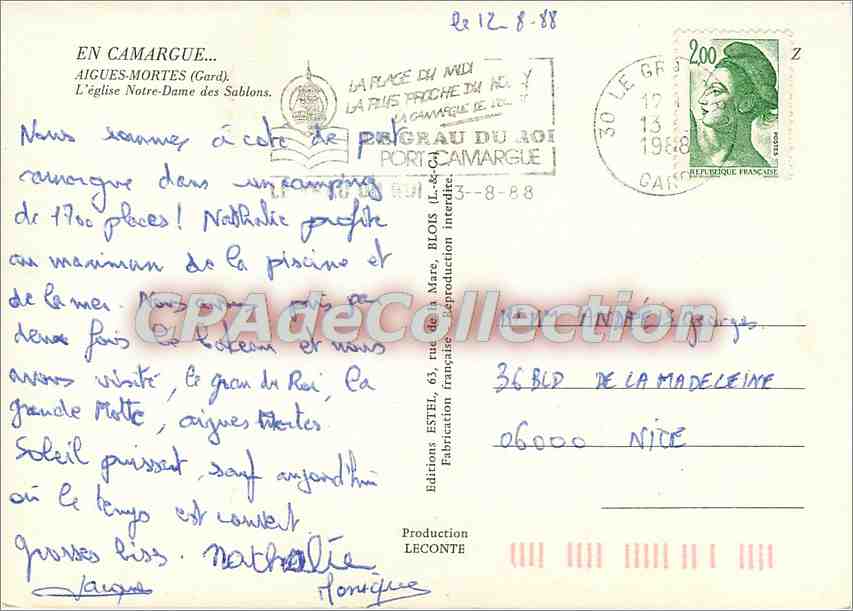 le 12-8-88
EN CAMARGUE...
AIGUES-MORTES (Gard).
L'église Notre-Dame des Sablons.
LA PLAGE DU MIDI
LA PLUS PROCHE DU
LA CAMARGUE
GRAU DU ROI
PORT CAMARGUE
3-8-88
30 LE GR
13
1988
GARD
2,00
POSTES
REPUBLIQUE FRANÇAISE
Z
Nous sommes à coté de port
camargue dans un camping
de 1700 places! Nathalie profite
au maximum de la piscine et
de la mer. Nous avons pris
deux fois le bateau et nous
avons visité, le grau du Roi, la
grande Motte, aigues Mortes.
Soleil puissant, sauf aujourd'hui
où le temps est couvert
grosses biss. Nathalie
Jacques Monique
CPAdeCollection
Editions ESTEL, 63, rue de la Mare, BLOIS (L.-&-C.)
Fabrication française - Reproduction interdite.
ANDRÉ Georges
36 BLD DE LA MADELEINE
06000 NICE
Production
LECONTE